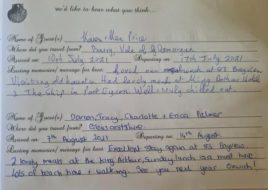 we'd like to hear what you think...
Name of Guest(s) Karen + Max Price
Where did you travel from? Barry, Vale of Glamorgan
Arrived on: 10th July 2021 Departing on: 17th July 2021
Lasting memories/message for hosts: Loved our lunch at 53 Bayview
Visiting
& The Ship in Port Eynon. Well & truly chilled out.
Name of Guest(s) Darron, Tracy, Charlotte + Erica Palmer
Where did you travel from? Gloucestershire
Arrived on: 7th August 2021 Departing on: 14th August
Lasting memories/message for hosts: Excellent stay again at 53 Bayview
2 lovely meals at the King Arthur, Sunday lunch is a must have
lots of beach time + walking. See you next year